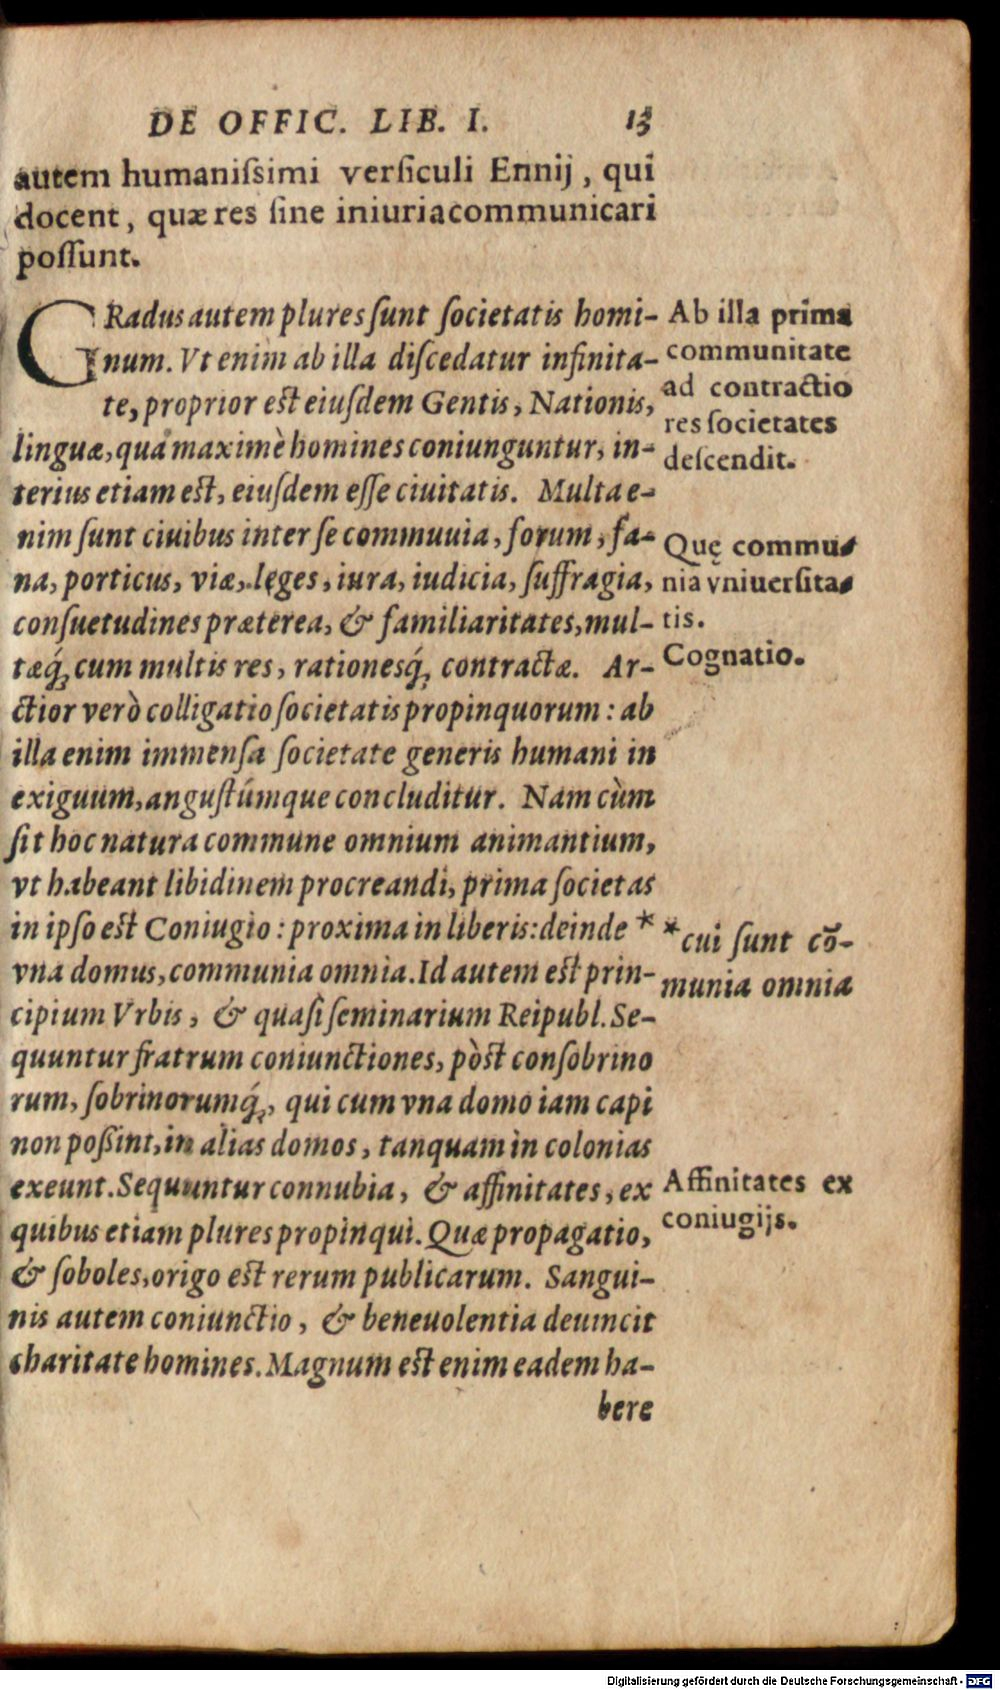 DE OFFIC. LIB. I. 13
autem humaniſsimi verſiculi Ennij, qui
docent, quæ res ſine iniuria communicari
poſſunt.
GRadus autem plures ſunt ſocietatis homi-
num. Vt enim ab illa diſcedatur infinita-
te, proprior eſt eiuſdem Gentis, Nationis,
linguæ, qua maximè homines coniunguntur, in-
terius etiam eſt, eiuſdem eſſe ciuitatis. Multa e-
nim ſunt ciuibus inter ſe commuuia, forum, fa-
na, porticus, viæ, lęges, iura, iudicia, ſuffragia,
conſuetudines præterea, & familiaritates, mul-
tæq́; cum multis res, rationesq́; contractæ. Ar-
ctior verò colligatio ſocietatis propinquorum: ab
illa enim immenſa ſocietate generis humani in
exiguum, anguſtúmque concluditur. Nam cùm
ſit hoc natura commune omnium animantium,
vt habeant libidinem procreandi, prima ſocietas
in ipſo eſt Coniugio: proxima in liberis: deinde *
vna domus, communia omnia. Id autem eſt prin-
cipium Vrbis, & quaſi ſeminarium Reipubl. Se-
quuntur fratrum coniunctiones, pòſt conſobrino
rum, ſobrinorumq́;, qui cum vna domo iam capi
non poßint, in alias domos, tanquam in colonias
exeunt. Sequuntur connubia, & affinitates, ex
quibus etiam plures propinqui. Quæ propagatio,
& ſoboles, origo eſt rerum publicarum. Sangui-
nis autem coniunctio, & beneuolentia deuincit
charitate homines. Magnum eſt enim eadem ha-
bere
Ab illa prima
communitate
ad contractio
res ſocietates
deſcendit.
Quę commu-
nia vniuerſita-
tis.
Cognatio.
*cui ſunt cō-
munia omnia
Affinitates ex
coniugijs.
Digitalisierung gefördert durch die Deutsche Forschungsgemeinschaft - DFG